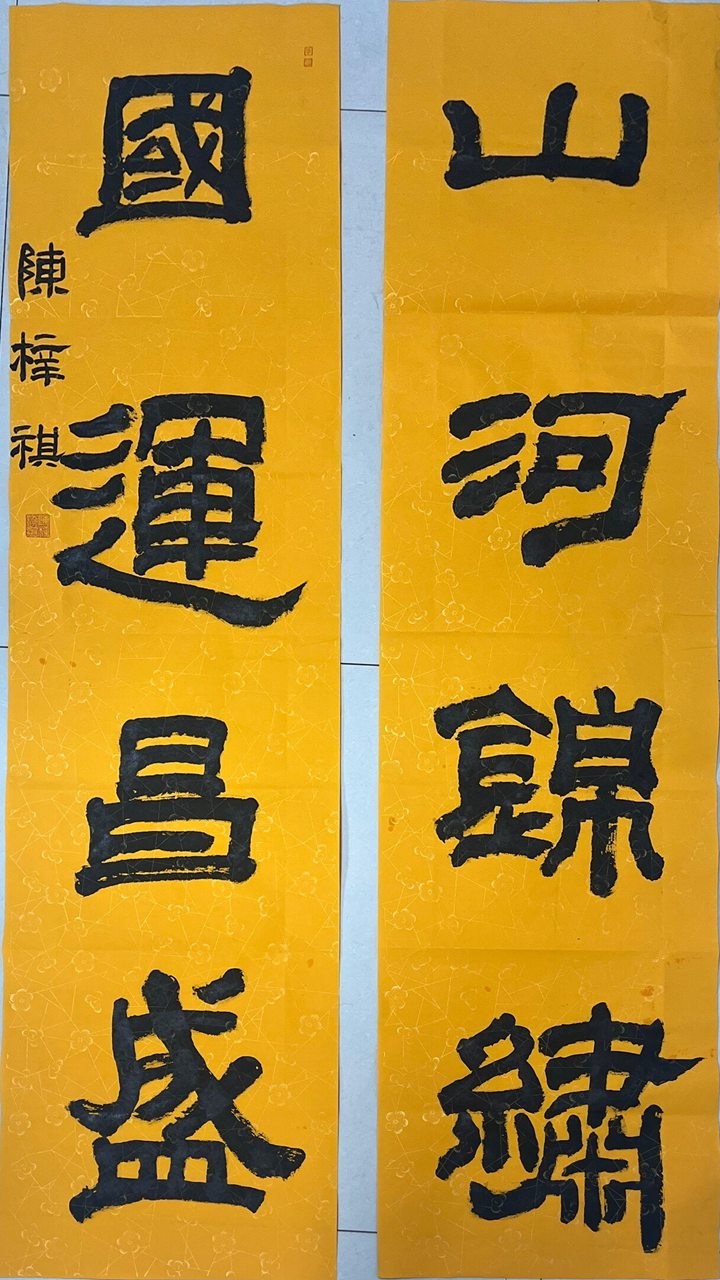 山河錦繡
國運昌盛
陳梓祺